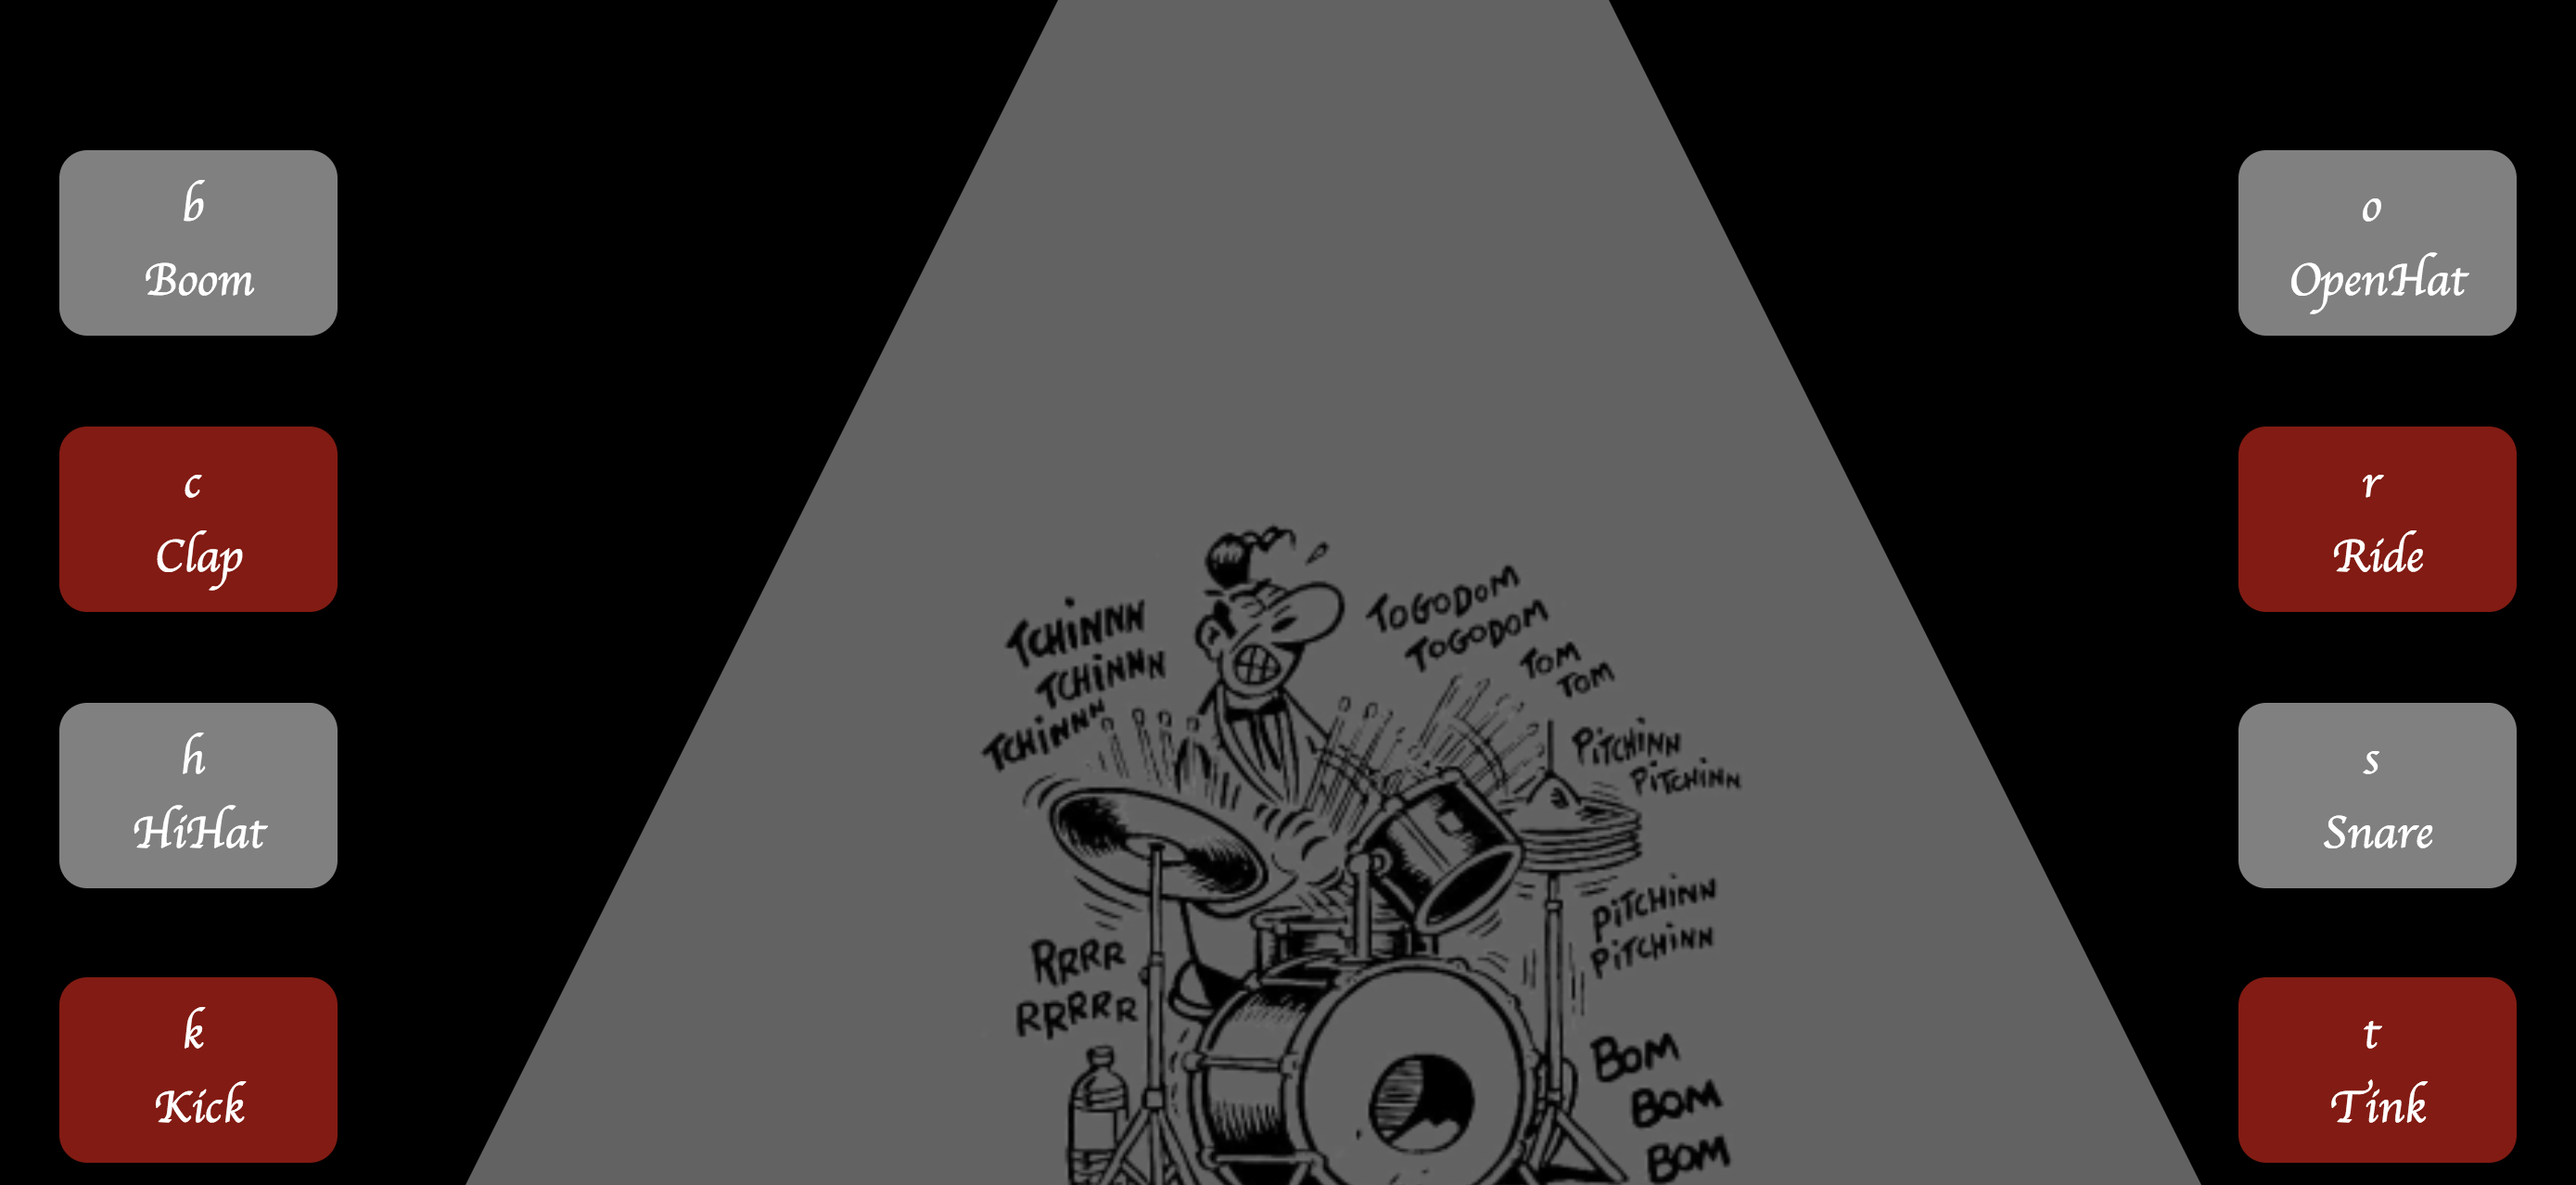 b
Boom
c
Clap
h
HiHat
k
Kick
TCHiNNN
TCHiNNN
TCHiNNN
RRRR
RRRRR
TOGODOM
TOGODOM
TOM
TOM
PiTCHiNN
PiTCHiNN
PiTCHiNN
PiTCHiNN
BOM
BOM
BOM
o
OpenHat
r
Ride
s
Snare
t
Tink